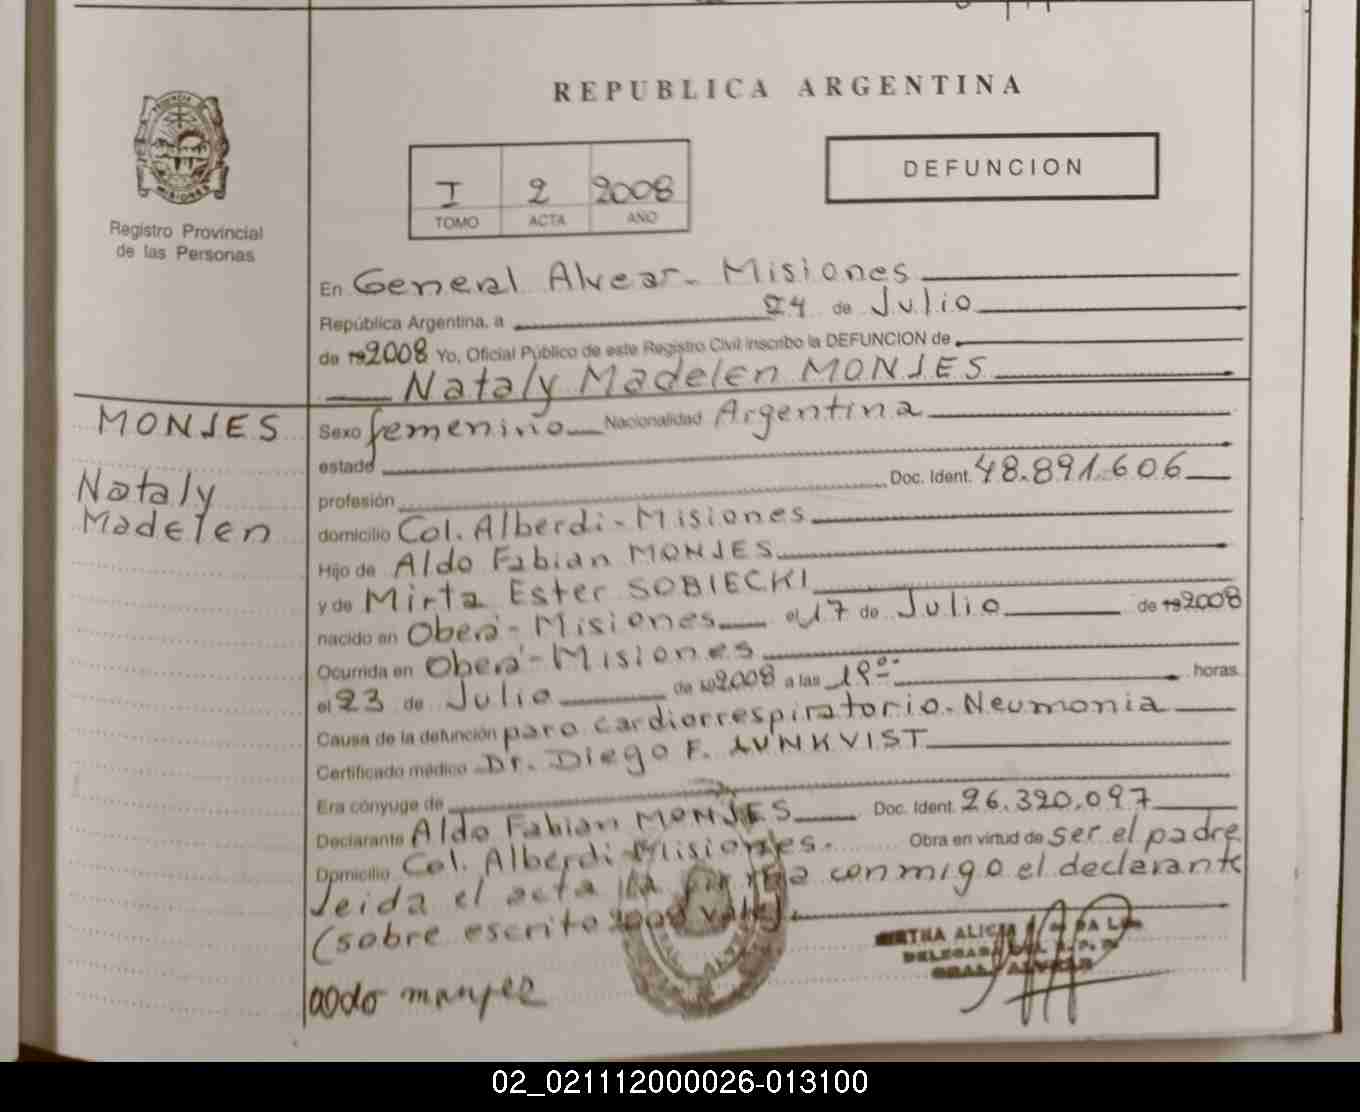 REPUBLICA ARGENTINA
I 2 2008
TOMO ACTA AÑO
DEFUNCION
Registro Provincial
de las Personas
En General Alvear - Misiones
República Argentina, a 24 de Julio
de 19 2008 Yo, Oficial Público de este Registro Civil inscribo la DEFUNCION de
Nataly Madelen MONJES
MONJES
Nataly
Madelen
Sexo femenino Nacionalidad Argentina
estado
profesión Doc. Ident. 48.891.606
domicilio Col. Alberdi - Misiones
Hijo de Aldo Fabian MONJES
y de Mirta Ester SOBIECKI
nacido en Oberá - Misiones el 17 de Julio de 19 2008
Ocurrida en Oberá - Misiones
el 23 de Julio de 19 2008 a las horas.
Causa de la defunción paro cardiorrespiratorio. Neumonia
Certificado médico Dr. Diego F. LUNKVIST
Era cónyuge de
Declarante Aldo Fabian MONJES Doc. Ident. 26.320.097
Domicilio Col. Alberdi - Misiones. Obra en virtud de ser el padre
leida el acta la firma conmigo el declarante
(sobre escrito 2008 vale).
MIRTHA ALICIA
DELEGADA DEL R. P. P.
GRAL. ALVEAR
02_021112000026-013100